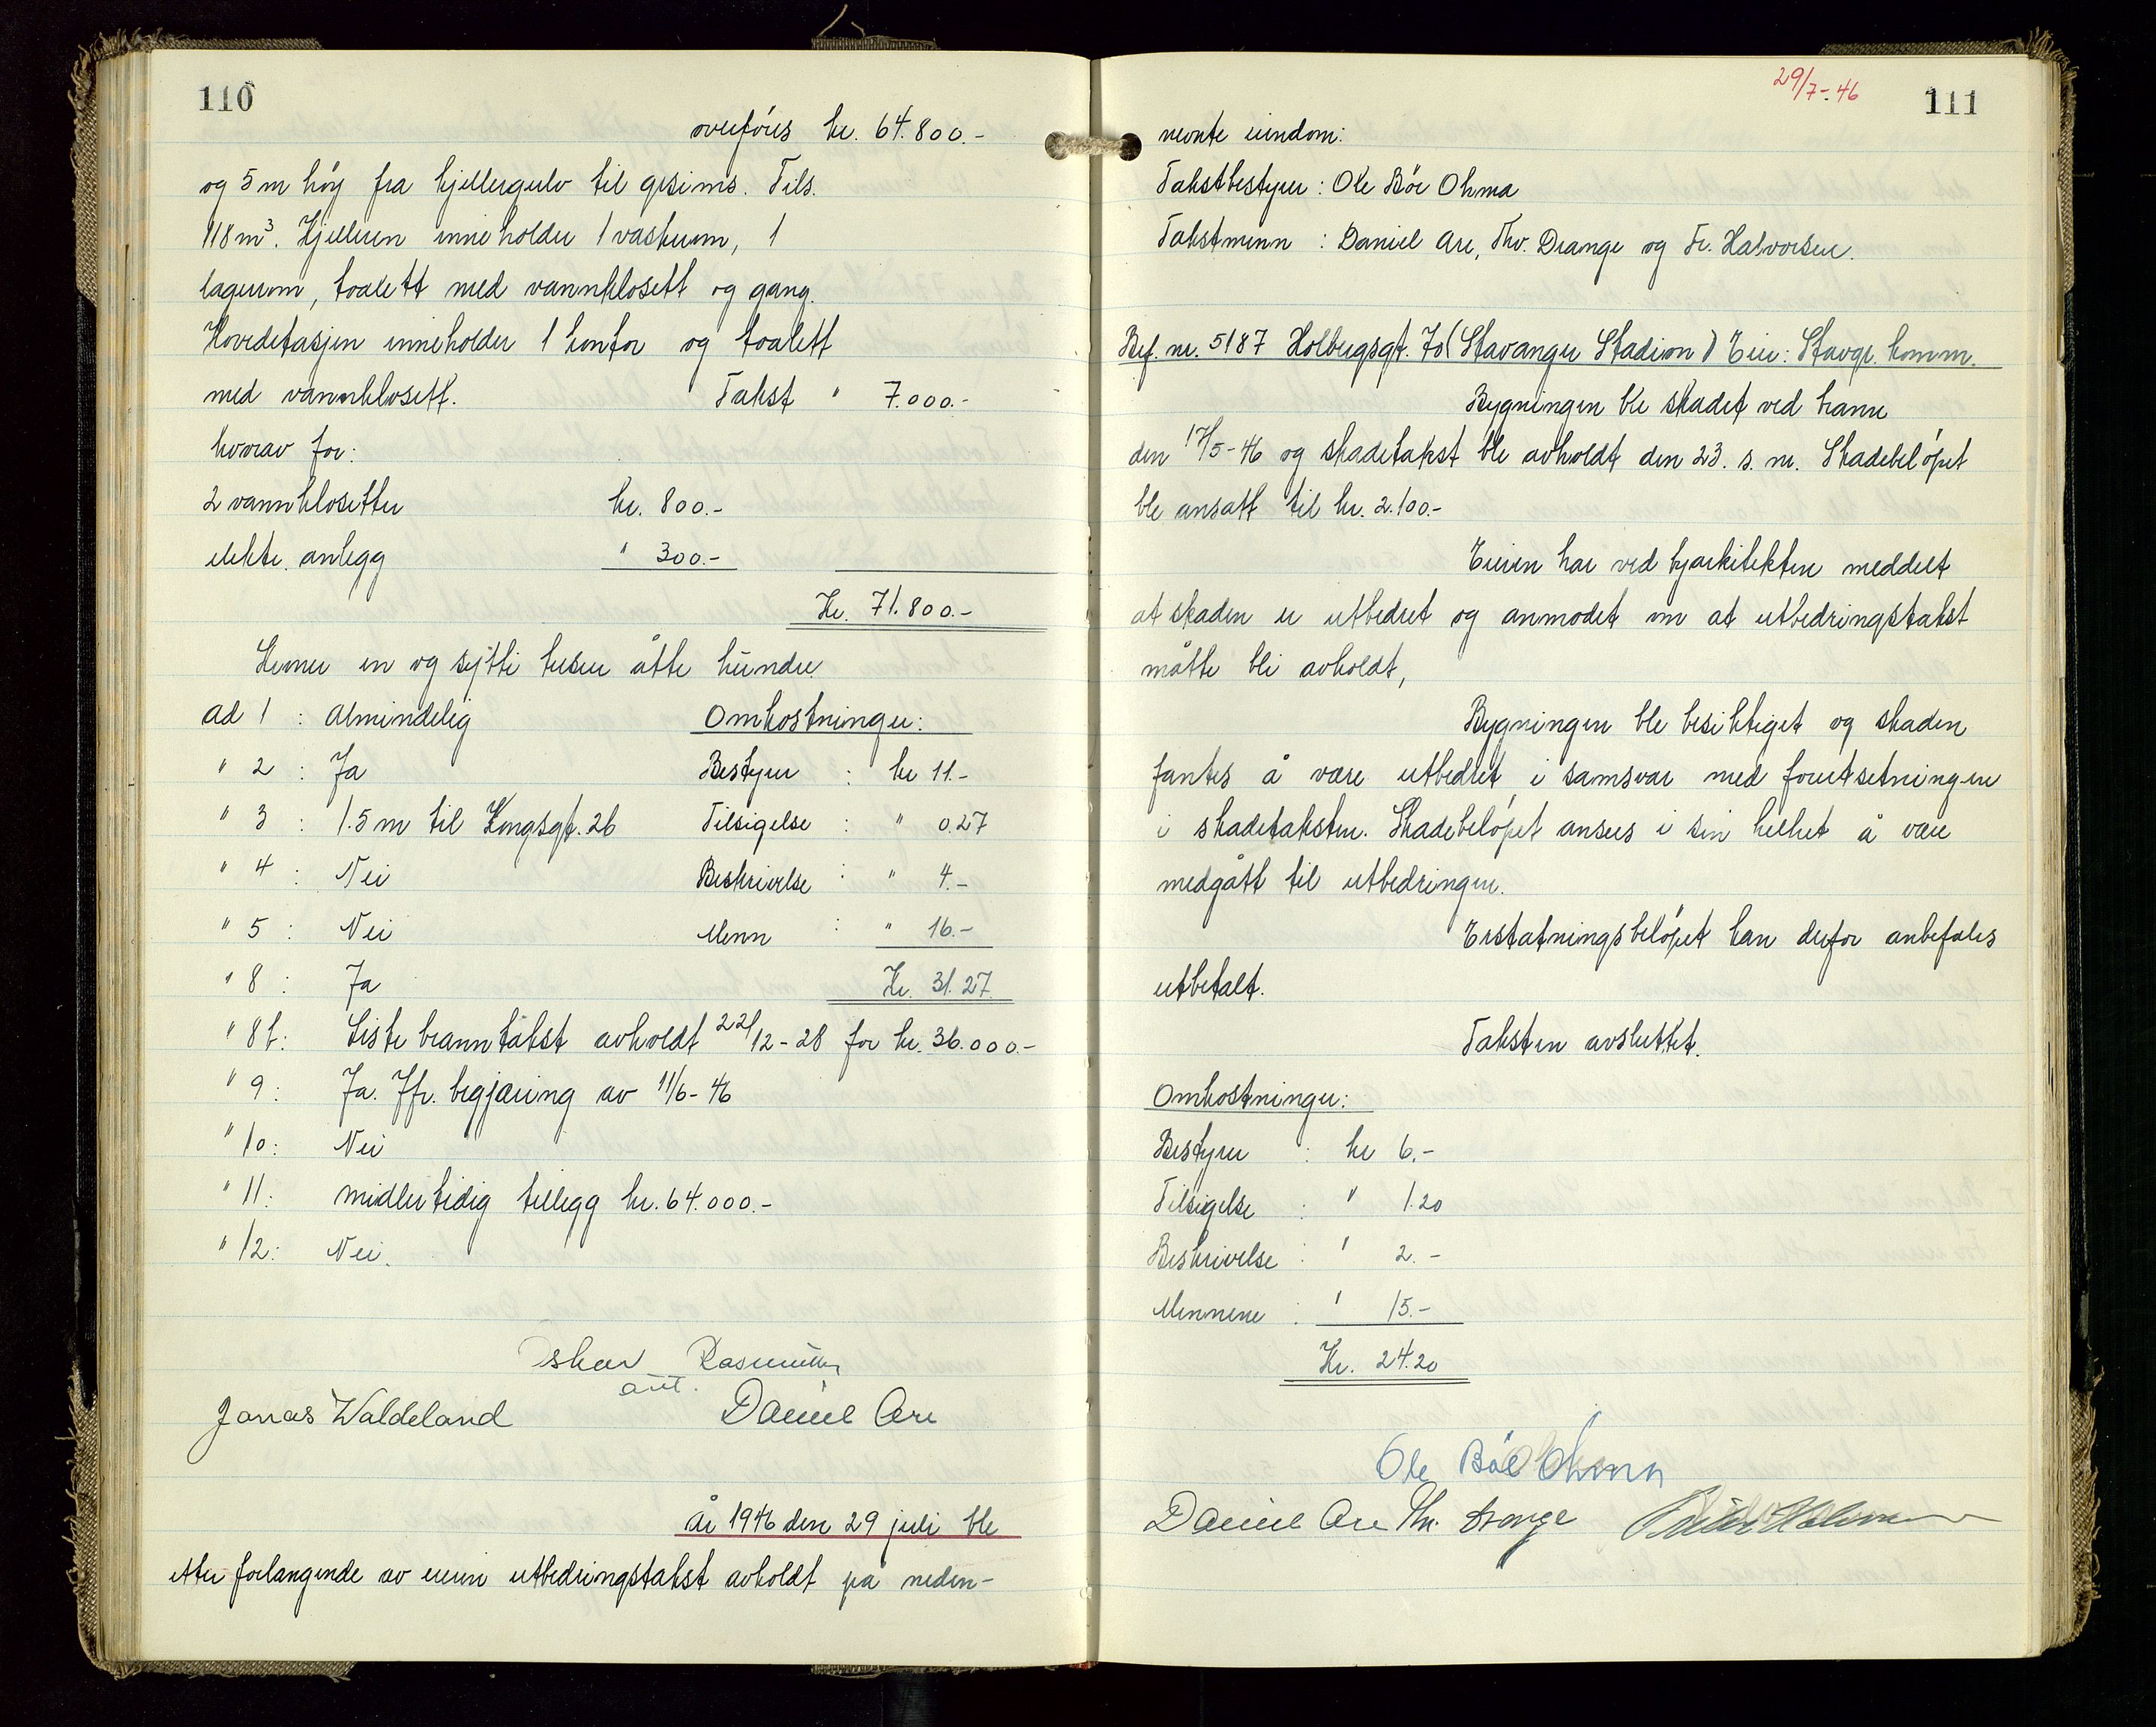 110
overføres kr. 64.800.-
og 5 m høy fra kjellergulv til gesims. Tils.
118 m³. Kjelleren inneholder 1 vaskerom, 1
lagerrom, toalett med vannklosett og gang.
Hovedetasjen inneholder 1 kontor og toalett
med vannklosett. Takst " 7.000.-
hvorav for:
2 vannklosetter kr. 800.-
elektr. anlegg " 300.-
Kr. 71.800.-
Kroner en og sytti tusen åtte hundre
ad 1 : Almindelig Omkostninger:
" 2 : Ja Bestyrer : kr 11.-
" 3 : 1.5 m til Kongsgt. 26 Tilsigelse : " 0.27
" 4 : Nei Beskrivelse : " 4.-
" 5 : Nei Menn : " 16.-
" 8 : Ja Kr. 31.27
" 8b: Siste branntakst avholdt 22/12-28 for kr. 36.000.-
" 9 : Ja. Jfr. begjæring av 11/6-46
" 10: Nei
" 11: midlertidig tillegg kr. 64.000.-
" 12: Nei.
Oskar Rasmussen
Jonas Waldeland Daniel Are
År 1946 den 29 juli ble
etter forlangende av eieren utbedringstakst avholdt på neden-
29/7-.46
111
nevnte eiendom:
Takstbestyrer : Ole Bøe Ohma
Takstmenn : Daniel Are, Thv. Drange og Fr. Halvorsen.
Bef. nr. 5187 Holbergsgt. 70 (Stavanger Stadion) Eier: Stavgr. komm.
Bygningen ble skadet ved brann
den 17/5-46 og skadetakst ble avholdt den 23. s. m. Skadebeløpet
ble ansatt til kr. 2.100.-
Eieren har ved byarkitekten meddelt
at skaden er utbedret og anmodet om at utbedringstakst
måtte bli avholdt,
Bygningen ble besiktiget og skaden
fantes å være utbedret i samsvar med forutsetningene
i skadetaksten. Skadebeløpet ansees i sin helhet å være
medgått til utbedringen.
Erstatningsbeløpet kan derfor anbefales
utbetalt.
Taksten avsluttet.
Omkostninger:
Bestyrer : kr 6.-
Tilsigelse : " 1.20
Beskrivelse : " 2.-
Mennene : " 15.-
Kr. 24.20
Ole Bøe Ohma
Daniel Are Thv. Drange